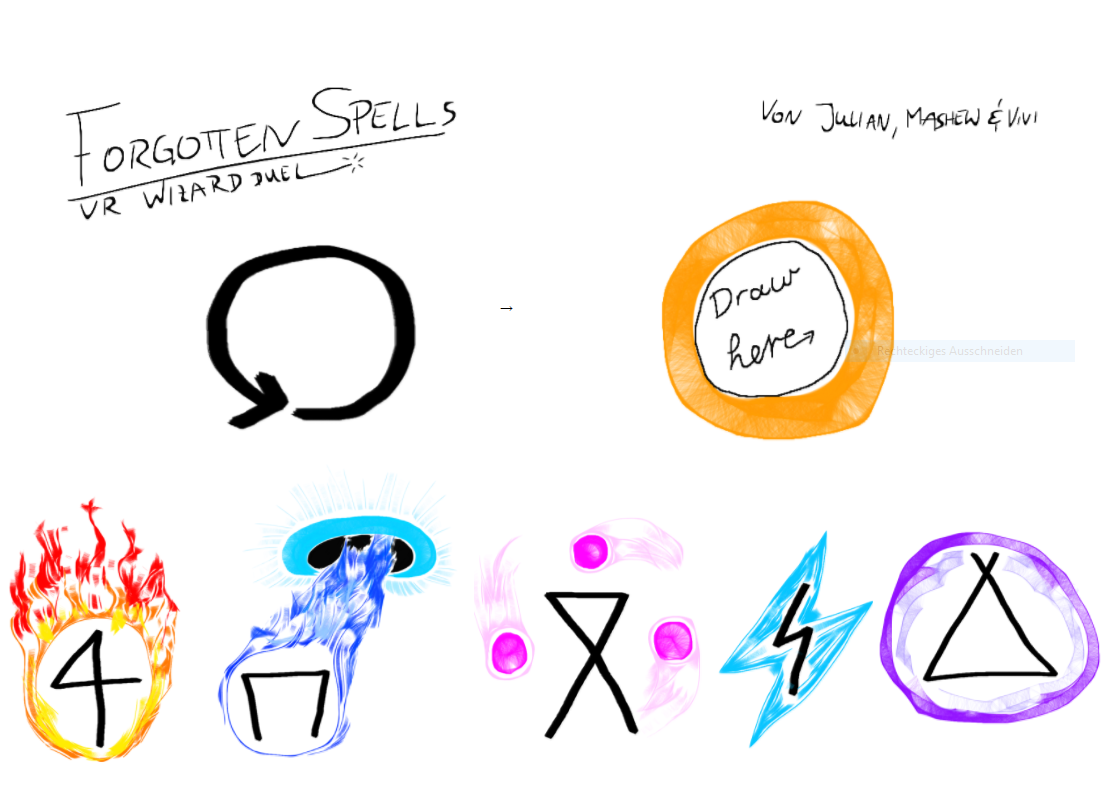 FORGOTTEN SPELLS
VR WIZARD DUEL
VON JULIAN, MASHEW & VIVI
→
Draw
here→
Rechteckiges Ausschneiden